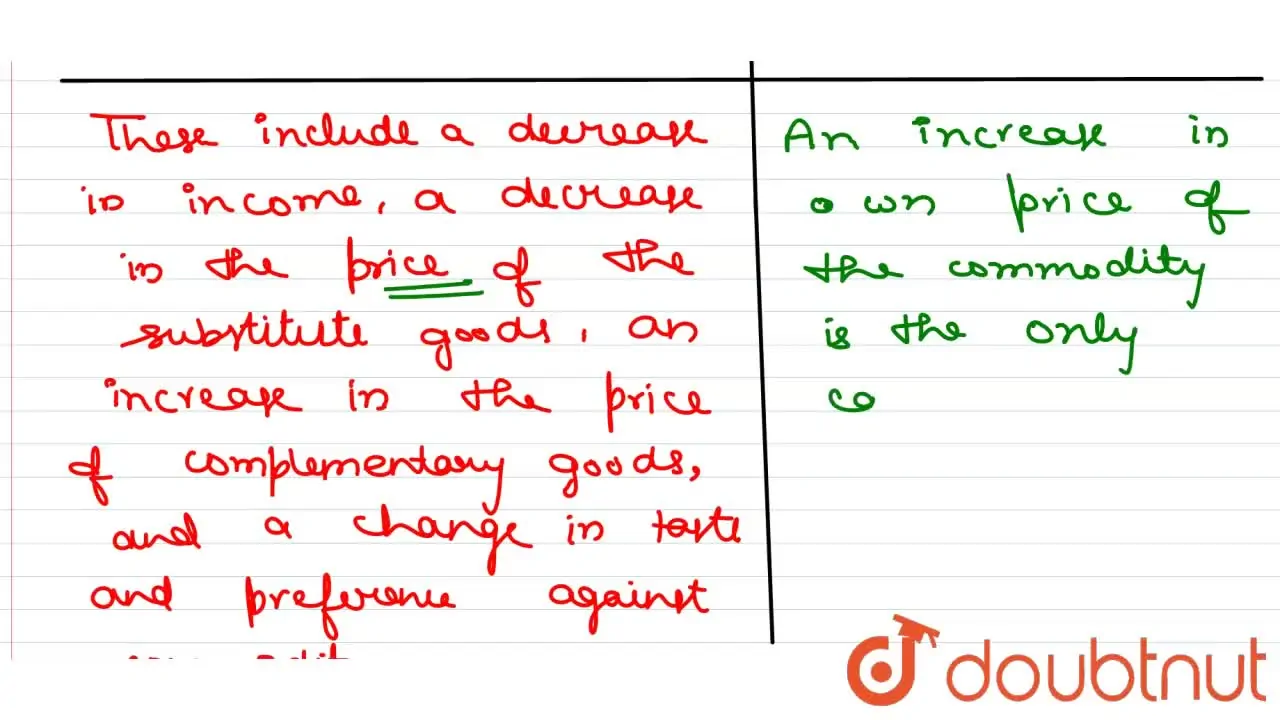 These include a decrease
in income, a decrease
in the price of the
substitute goods, an
increase in the price
of complementary goods,
and a change in taste
and preference against
An increase in
own price of
the commodity
is the only
co
doubtnut